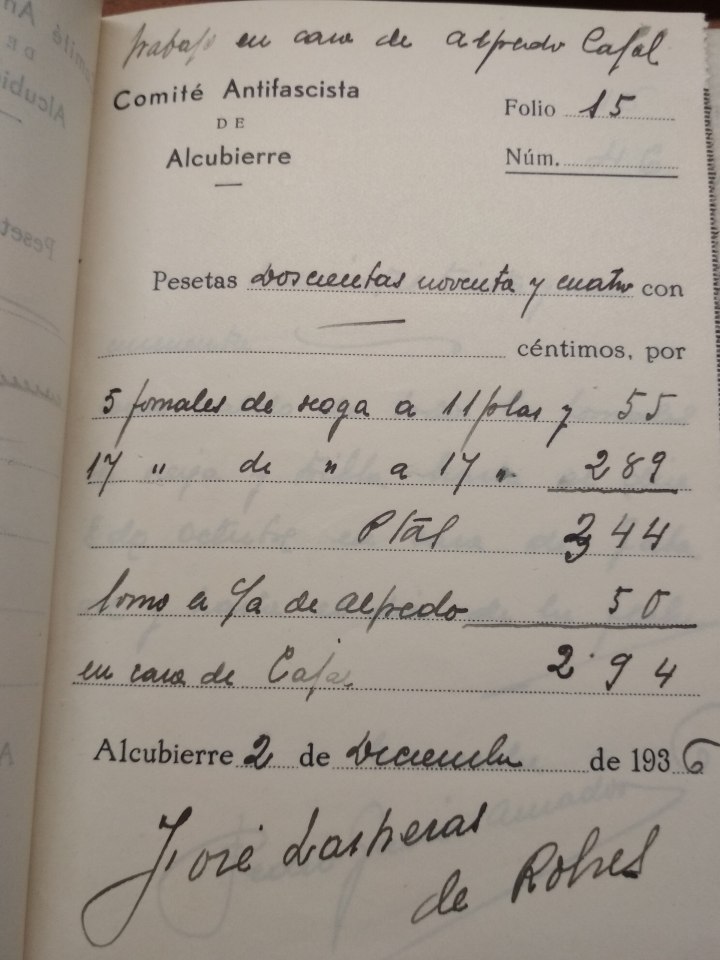 trabajo en casa de Alfredo Cajal
Comité Antifascista
DE
Alcubierre
Folio 15
Núm.
Pesetas Doscientas noventa y cuatro con
céntimos, por
5 jornales de a 11 ptas y 55
17 " de " a 17 " 289
344
Tomo a c/a de Alfredo 50
en casa de Cajal 294
Alcubierre 2 de Diciembre de 1936
José Lasheras
de Robres